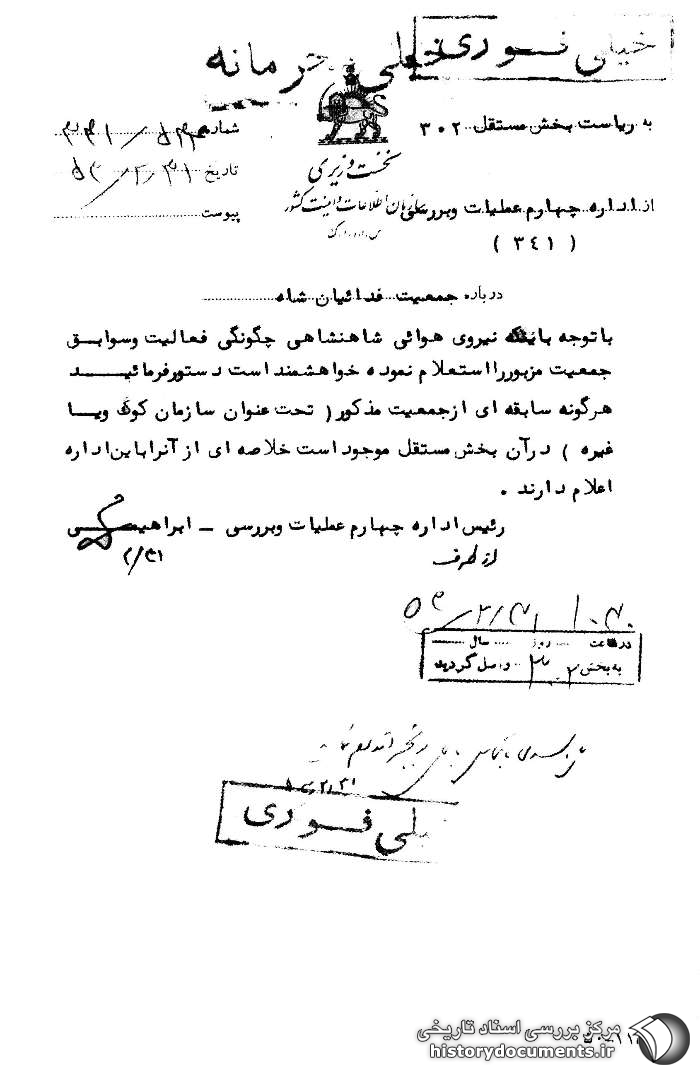 خیلی فوری
خیلی محرمانه
به ریاست بخش مستقل ۳۰۲
شماره
تاریخ ۳۱/۲/۵۳
پیوست
نخست وزیری
سازمان اطلاعات و امنیت کشور
س.ا.و.ا.ک
از اداره چهارم عملیات وبررسی
(۳٤۱)
درباره جمعیت فدائیان شاه
باتوجه باینکه نیروی هوائی شاهنشاهی چگونگی فعالیت وسوابق
جمعیت مزبوررااستعلام نموده خواهشمند است دستورفرمائید
هرگونه سابقه ای ازجمعیت مذکور( تحت عنوان سازمان کوک ویا
غیره ) درآن بخش مستقل موجود است خلاصه ای از آنرا باین اداره
اعلام دارند .
رئیس اداره چهارم عملیات وبررسی – ابراهیمی
از طرف
۲/۳۱
۵۳/۲/۳۱
۱۰:۳۰
درساعت .... روز .... سال ....
به بخش ۳۰۲ واصل گردید
۳۱/۲
خیلی فوری
مرکز بررسی اسناد تاریخی
historydocuments.ir